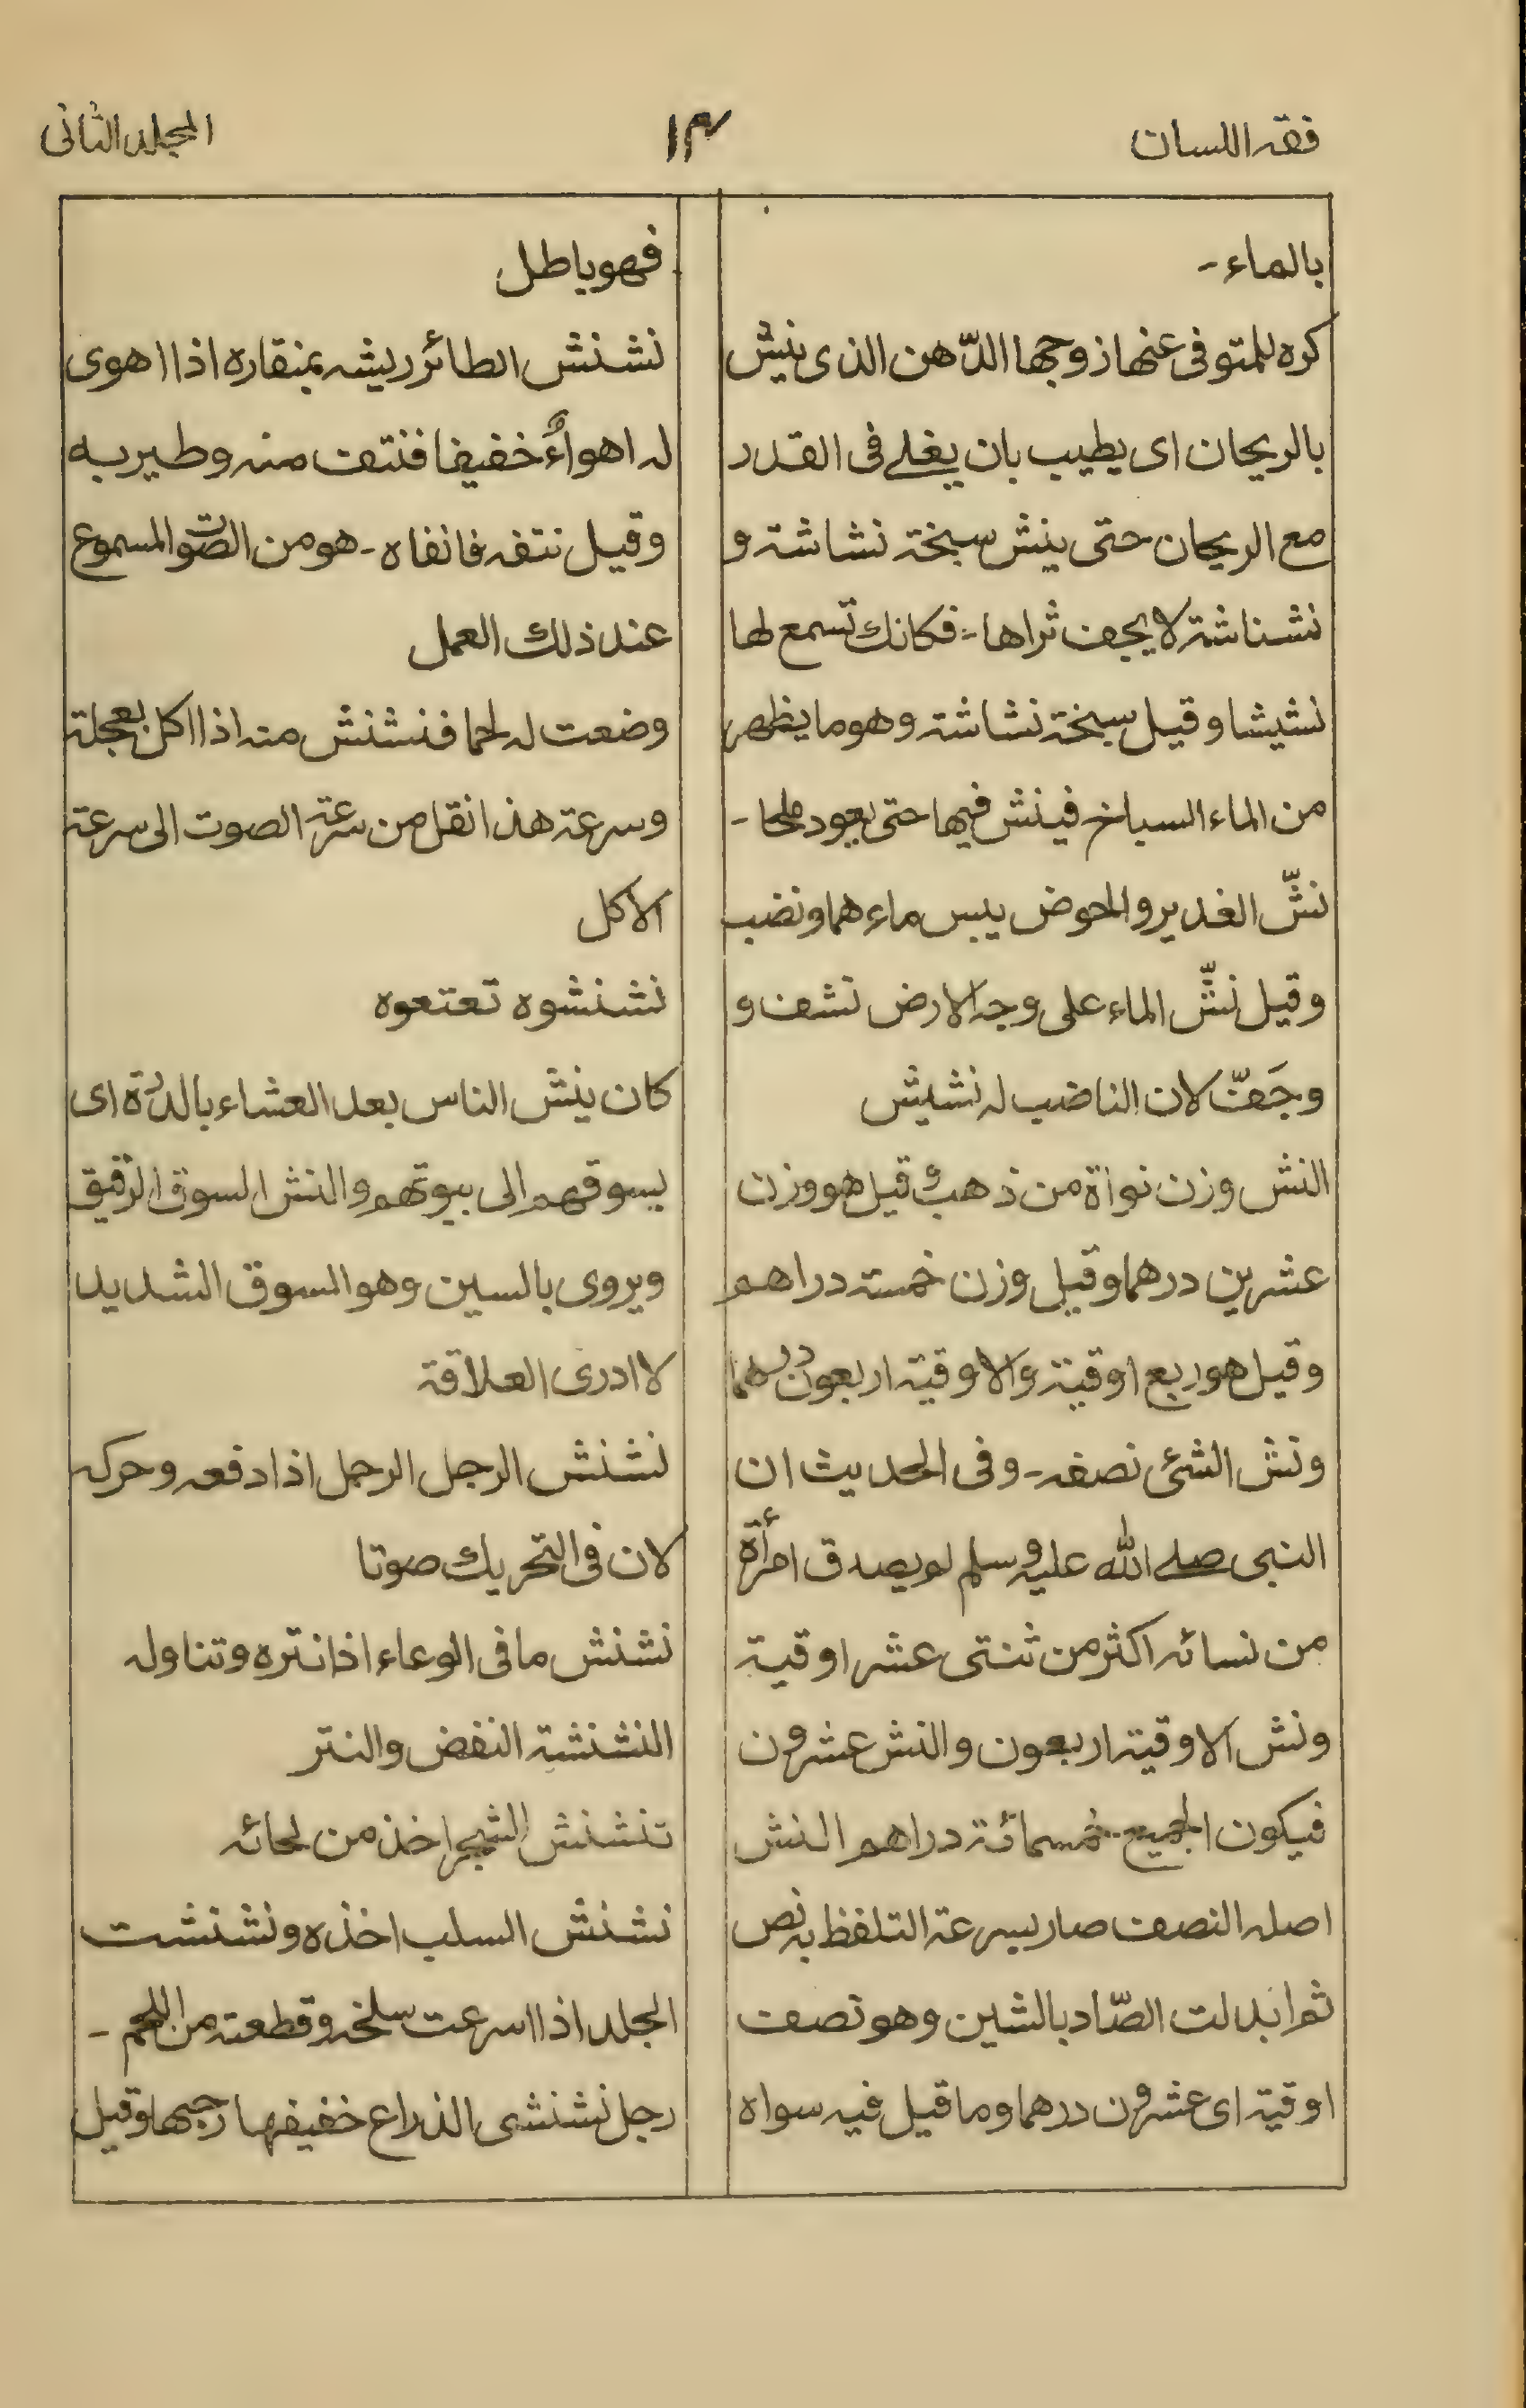 فقه اللسان
١٣
المجلد الثانى
بالماء-
كره للمتوفى عنها زوجها الدّهن الذى ينش
بالريحان اى يطيب بان يغلے فى القدر
مع الريحان حتى ينش سبخة نشاشة و
نشناشة لا يجف ثراها- فكانك تسمع لها
نشيشا وقيل سبخة نشاشة وهو ما يظهر
من الماء السباخ فينش فيها حتى يعود ملحا-
نشّ الغدير والحوض يبس ماءهما ونضب
وقيل نشّ الماء على وجه الارض نشف و
وجَفّ لان الناضب له نشيش
النش وزن نواة من ذهب و قيل هو وزن
عشرين درهما وقيل وزن خمسة دراهم
وقيل هو ربع اوقية والاوقية اربعون درهما
ونش الشئ نصفه- وفى الحديث ان
النبى صلے الله عليه وسلم لم يصدق امرأة
من نسائه اكثر من ثنتى عشر اوقية
ونش الاوقية اربعون والنش عشرون
فيكون الجميع خمسمائة دراهم النش
اصله النصف صار بسرعة التلفظ به نص
ثم ابدلت الصّاد بالشين وهو نصف
اوقية اى عشرون درهما وما قيل فيه سواه
فهو باطل
نشنش الطائر ريشه بمنقاره اذا اهوى
له اهواءً خفيفا فنتف منه وطير به
وقيل نتفه فانفاه- هو من الصوت المسموع
عند ذلك العمل
وضعت له لحما فنشنش منه اذا اكل بعجلة
وسرعة هذا نقل من سرعة الصوت الى سرعة
الاكل
نشنشوه تعتعوه
كان ينش الناس بعد العشاء بالدرّة اى
يسوقهم الى بيوتهم والنش السوق الرقيق
ويروى بالسين وهو السوق الشديد
لا ادرى العلاقة
نشنش الرجل الرجل اذا دفعه وحركه
لان فى التحريك صوتا
نشنش ما فى الوعاء اذا نتره وتناوله
النشنشة النفض والنتر
تنشنش الشجر اخذ من لحائه
نشنش السلب اخذه ونشنشت
الجلد اذا اسرعت سلخه وقطعته من اللحم-
رجل نشنشى الذراع خفيفها رحبها وقيل